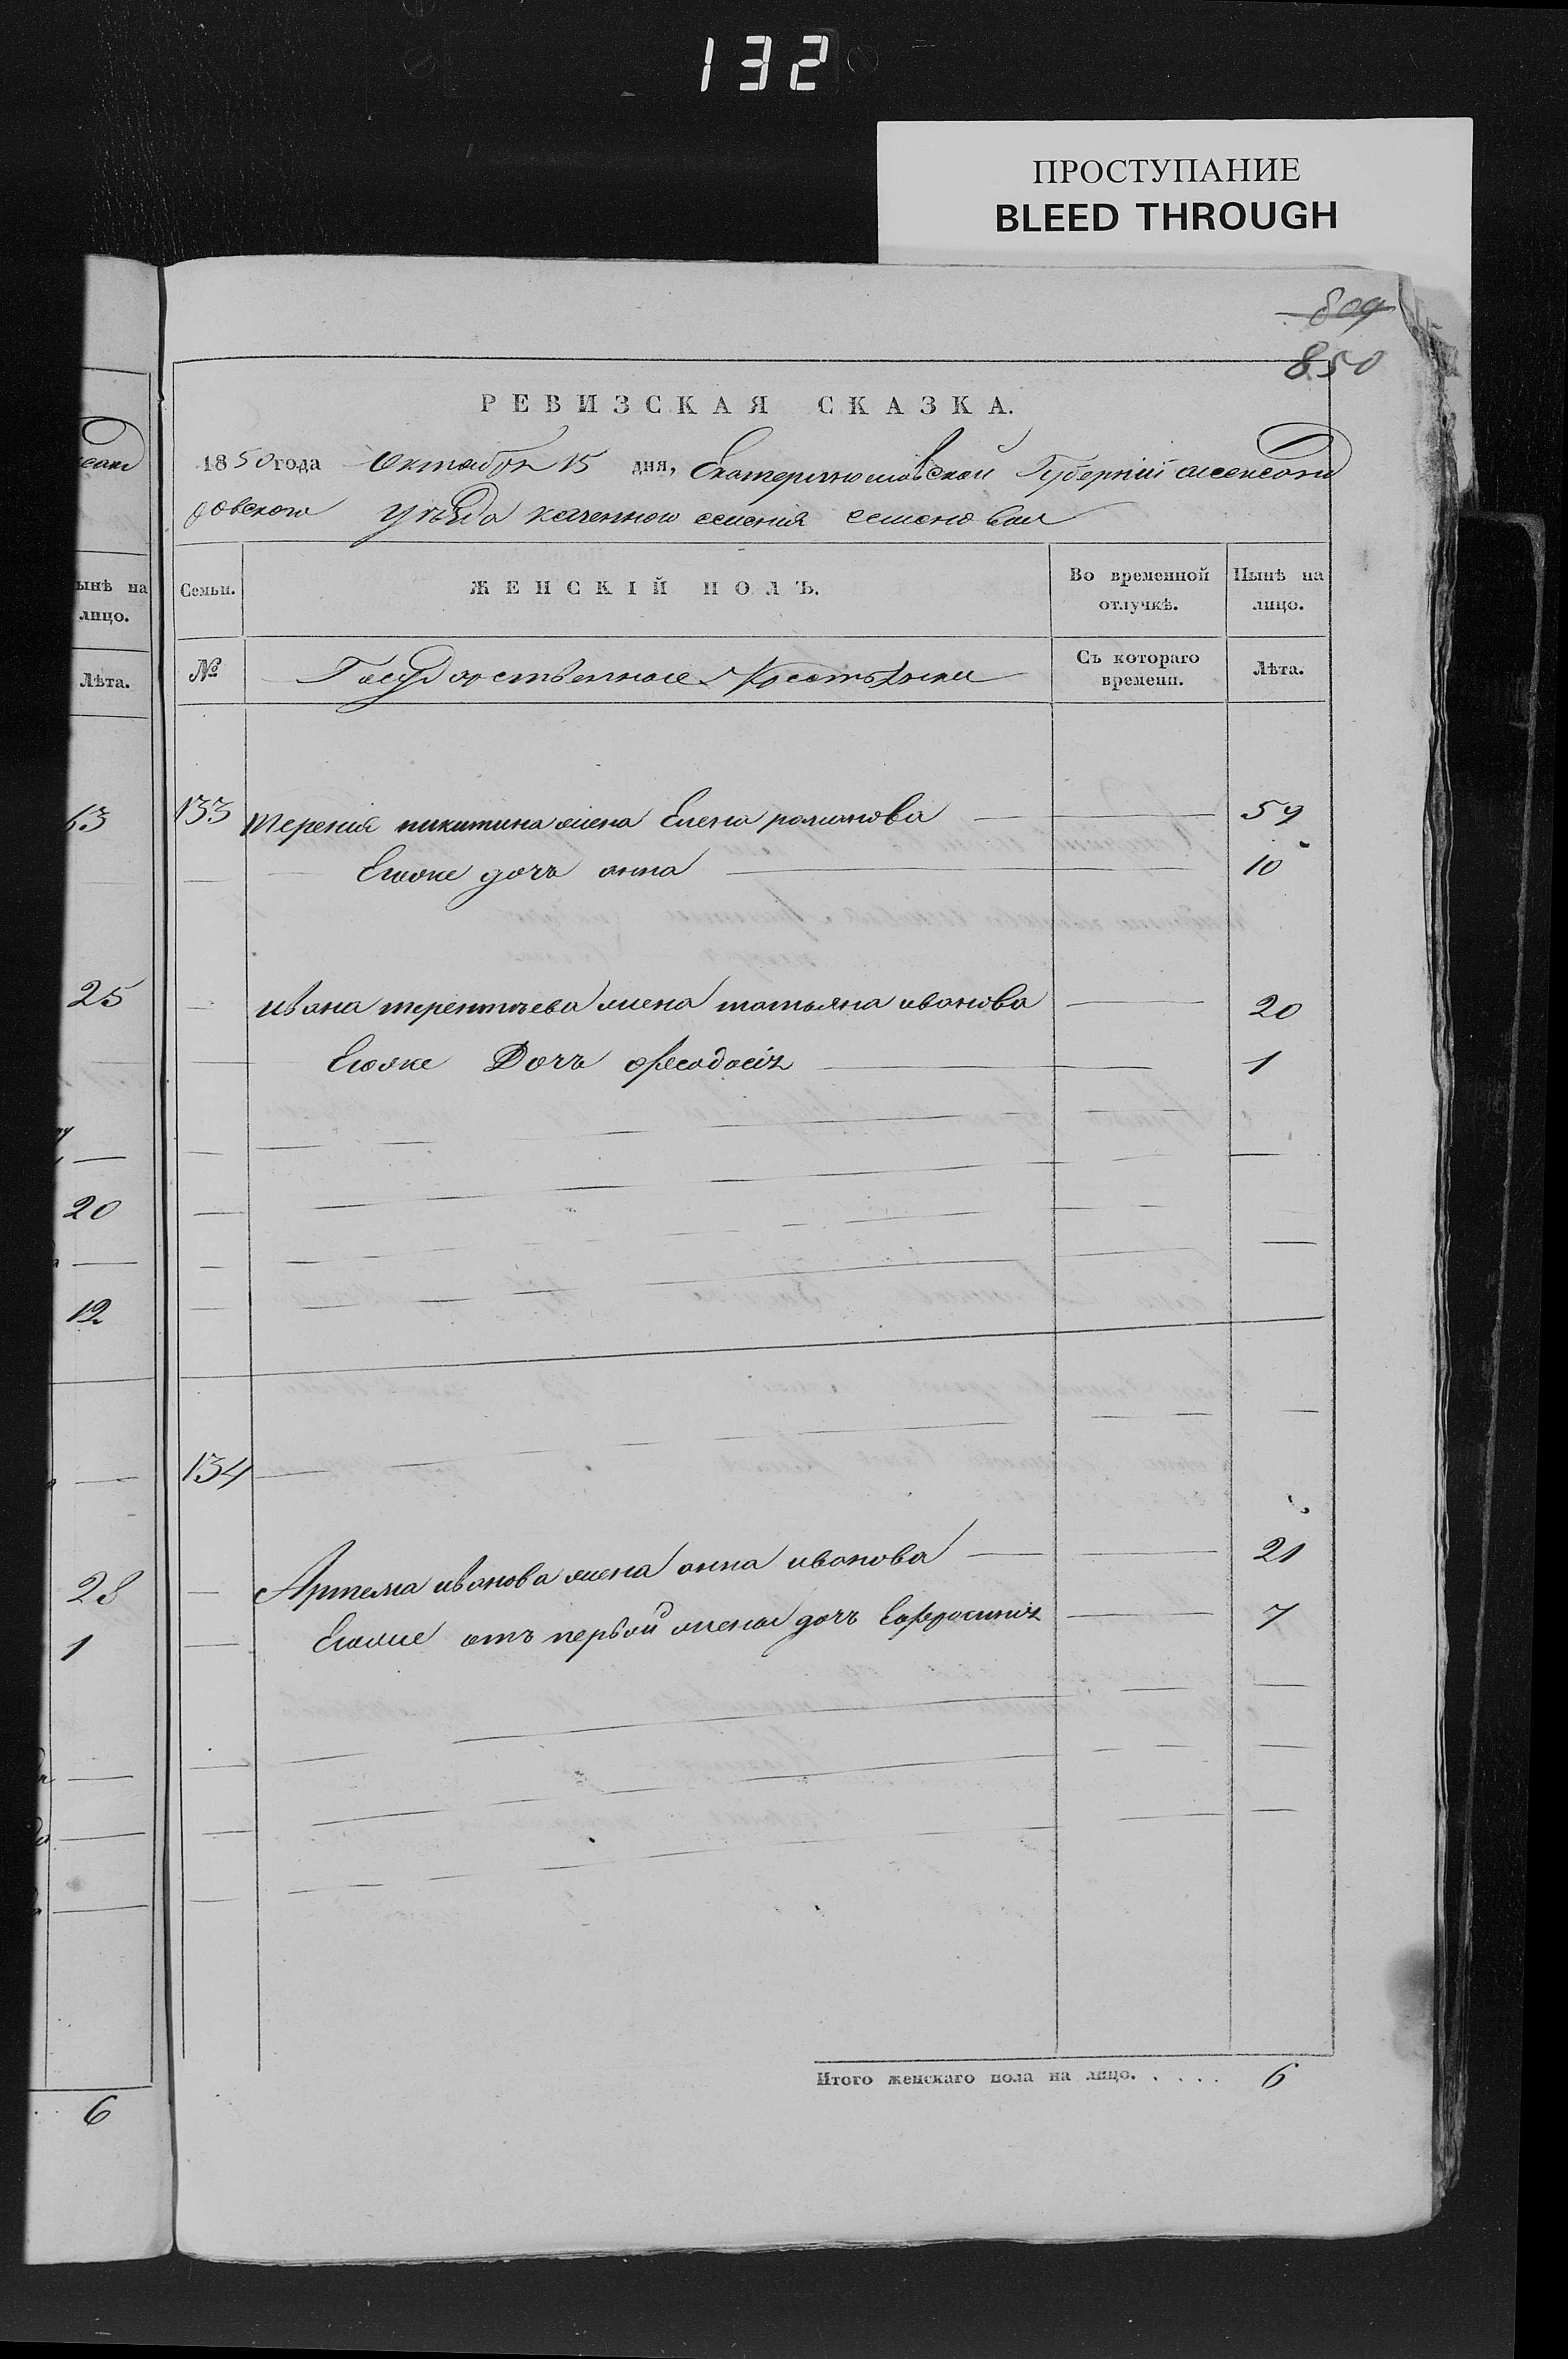 132
ПРОСТУПАНИЕ
BLEED THROUGH
809
850
РЕВИЗСКАЯ СКАЗКА.
1850 года Октября 15 дня, Екатеринославской Губернии александ
ровского уезда казенного селения
ынѣ на
лицо.
Лѣта.
Семьи.
ЖЕНСКІЙ ПОЛЪ.
Во временной
отлучкѣ.
Нынѣ на
лицо.
№
Государственные Крестьяне
Съ котораго
времени.
Лѣта.
63
133 терентия никитина жена Елена романова 59
Егоже дочь анна 10
25
ивана терентьева жена татьяна иванова 20
Егоже Дочь феодосія 1
20
12
134
28
Артема иванова жена анна иванова 21
1
Егоже отъ первой жены дочь Ефросиния 7
Итого женскаго пола на лицо. . . . . 6
6